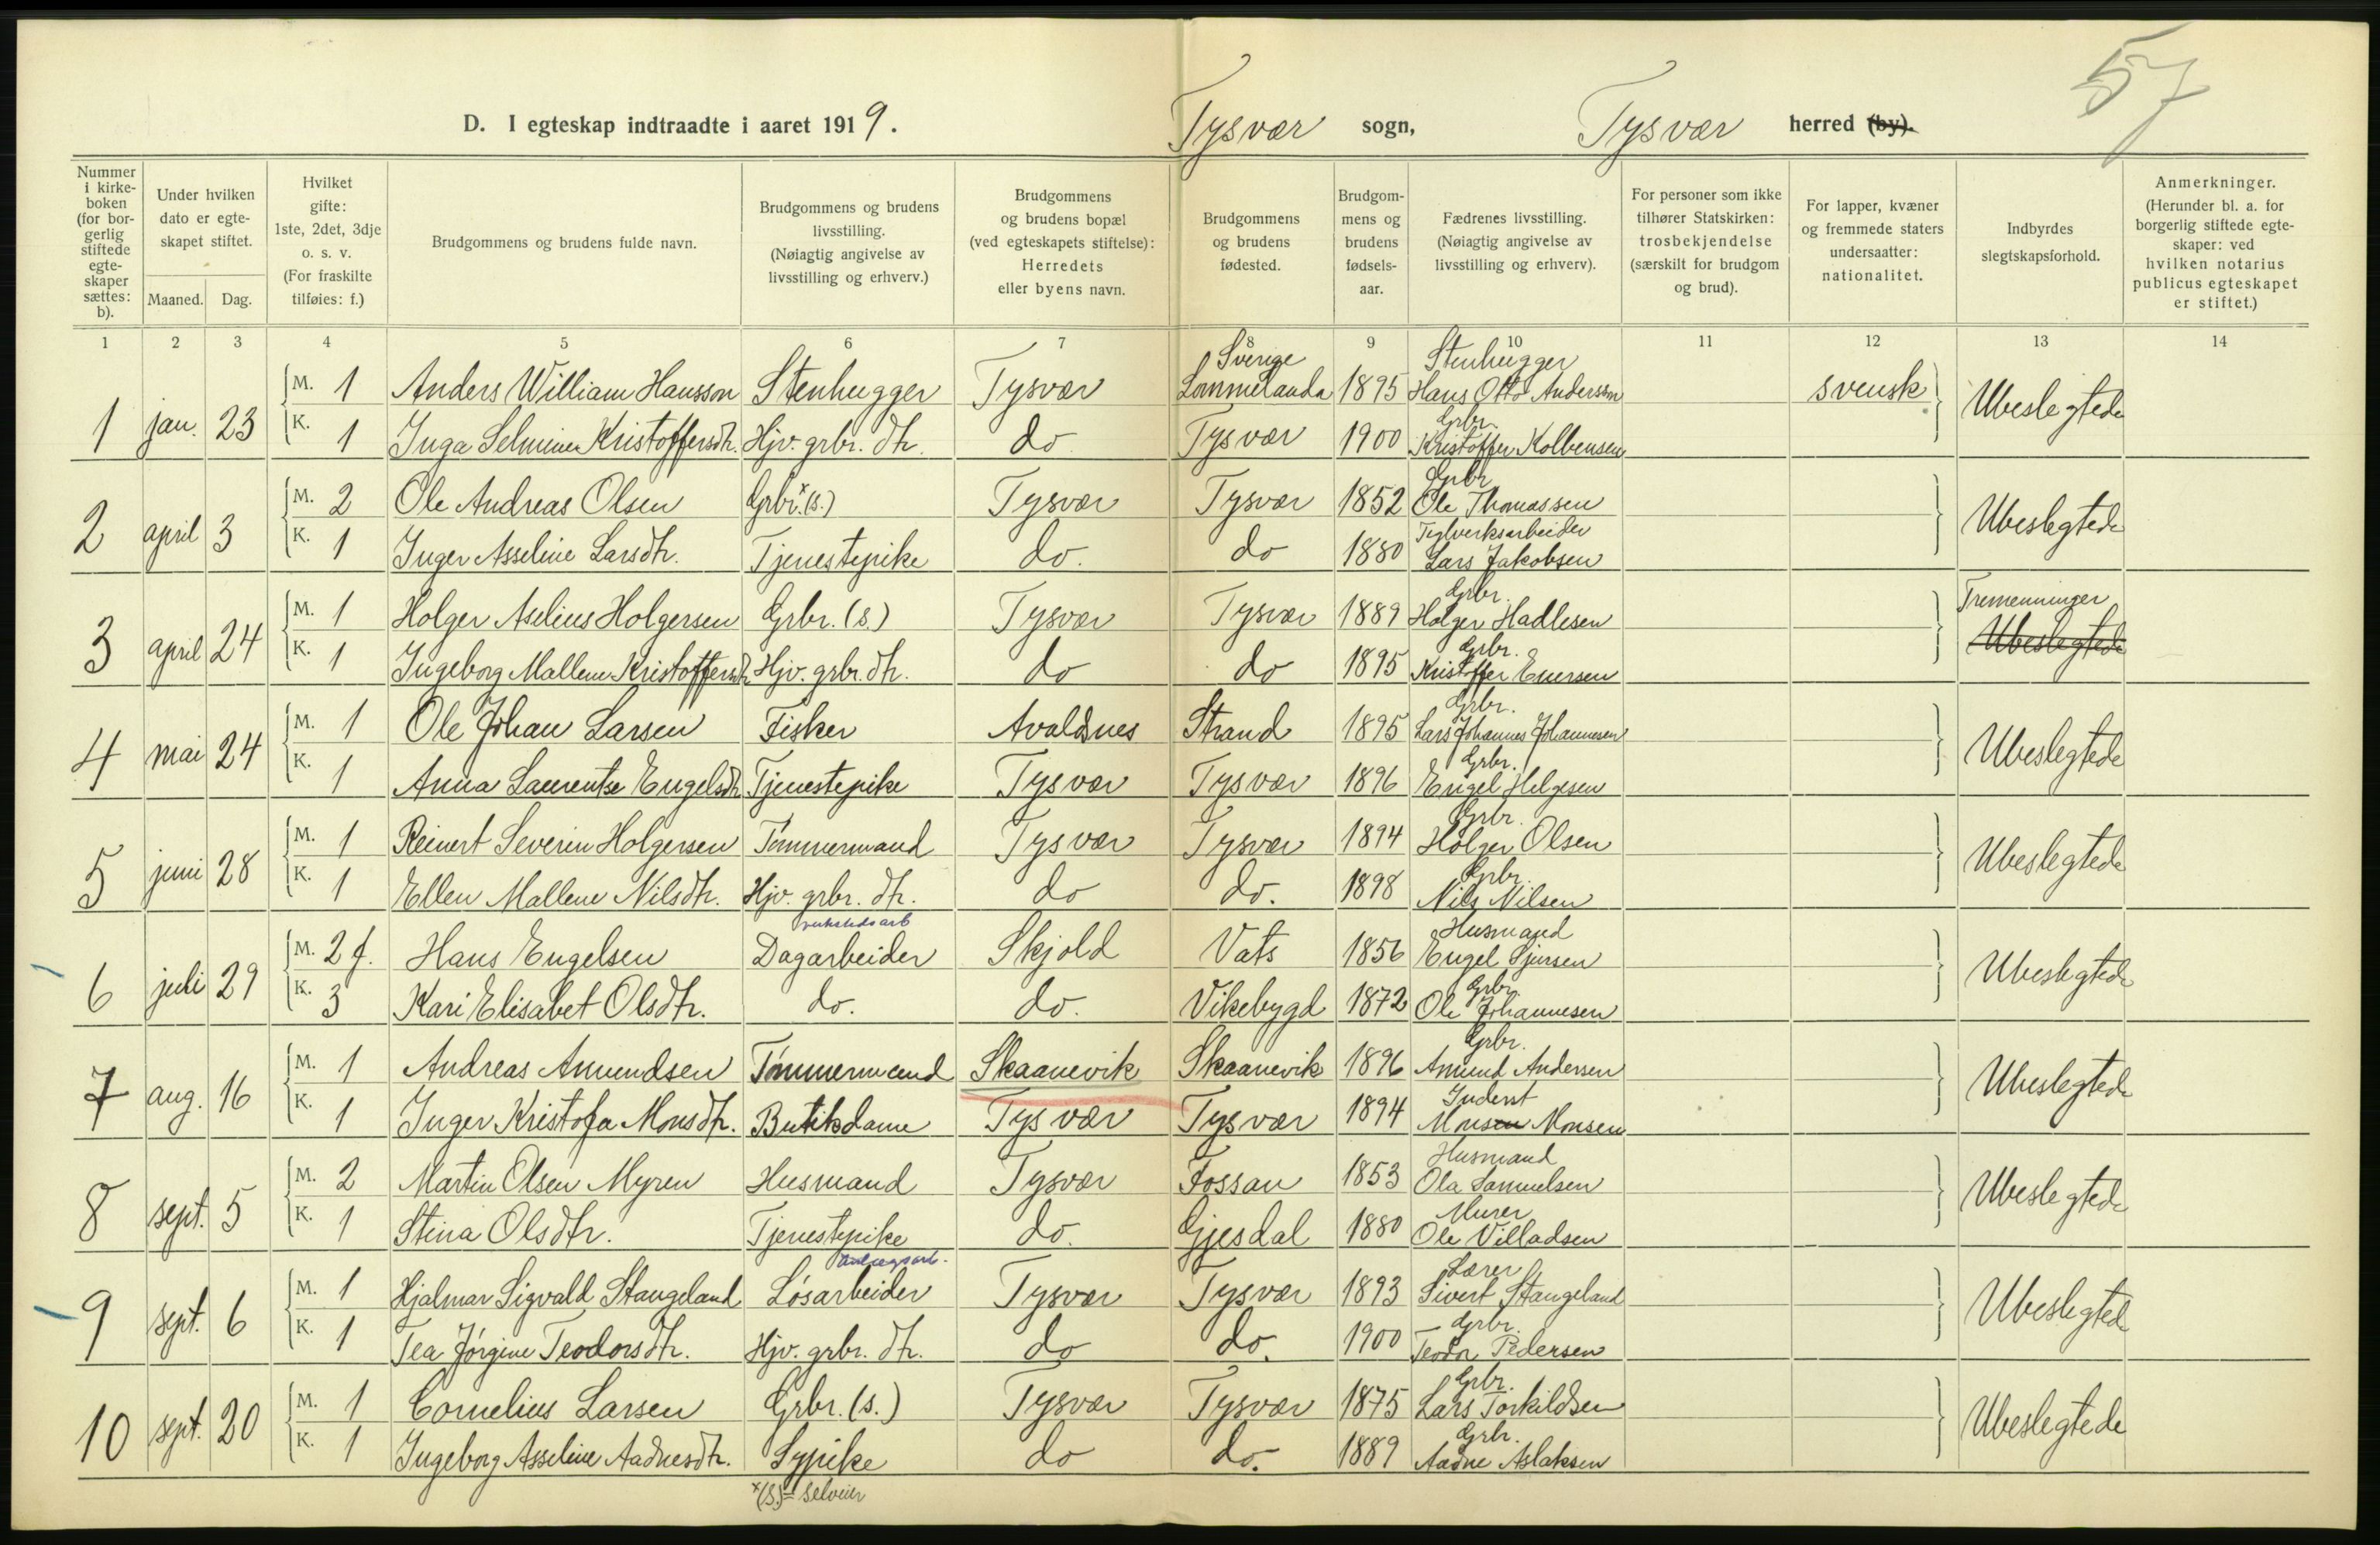 57
D. I egteskap indtraadte i aaret 1919. Tysvær sogn, Tysvær herred (by).
Nummer i kirkeboken (for borgerlig stiftede egteskaper sættes: b).
Under hvilken dato er egteskapet stiftet.
Maaned. Dag.
Hvilket gifte: 1ste, 2det, 3dje o. s. v. (For fraskilte tilføies: f.)
Brudgommens og brudens fulde navn.
Brudgommens og brudens livsstilling. (Nøiagtig angivelse av livsstilling og erhverv.)
Brudgommens og brudens bopæl (ved egteskapets stiftelse): Herredets eller byens navn.
Brudgommens og brudens fødested.
Brudgommens og brudens fødselsaar.
Fædrenes livsstilling. (Nøiagtig angivelse av livsstilling og erhverv).
For personer som ikke tilhører Statskirken: trosbekjendelse (særskilt for brudgom og brud).
For lapper, kvæner og fremmede staters undersaatter: nationalitet.
Indbyrdes slegtskapsforhold.
Anmerkninger. (Herunder bl. a. for borgerlig stiftede egteskaper: ved hvilken notarius publicus egteskapet er stiftet.)
1 2 3 4 5 6 7 8 9 10 11 12 13 14
Sverige Stenhugger
M. 1 Anders William Hansson Stenhugger Tysvær Lommelanda 1895 Hans Otto Andersson svensk
1 jan. 23 Ubeslegtede
Grbr.
K. 1 Inga Selmine Kristoffersdtr. Hjv. grbr. dtr. do Tysvær 1900 Kristoffer Kolbensen
Grbr
M. 2 Ole Andreas Olsen Grbr.x(s.) Tysvær Tysvær 1852 Ole Thomassen
2 april 3 Ubeslegtede
Teglverksarbeider
K. 1 Inger Asseline Larsdtr. Tjenestepike do. do 1880 Lars Jakobsen
Grbr. Tremenninger
M. 1 Holger Aselius Holgersen Grbr. (s.) Tysvær Tysvær 1889 Holger Hadlesen
3 april 24 Ubeslegtede
Grbr.
K. 1 Ingeborg Mallene Kristoffersdtr Hjv. grbr. dtr. do do 1895 Kristoffer Enersen
Grbr.
M. 1 Ole Johan Larsen Fisker Avaldsnes Strand 1895 Lars Johannes Johannesen
4 mai 24 Ubeslegtede
Grbr.
K. 1 Anna Laurentse Engelsdtr Tjenestepike Tysvær Tysvær 1896 Engel Helgesen
Grbr.
M. 1 Reinert Severin Holgersen Tømmermand Tysvær Tysvær 1894 Holger Olsen
5 juni 28 Ubeslegtede
Grbr.
K. 1 Ellen Mallene Nilsdtr. Hjv. grbr. dtr. do do. 1898 Nils Nilsen
verkstedsarb Husmand
M. 2 f. Hans Engelsen Dagarbeider Skjold Vats 1856 Engel Sjursen
6 juli 29 Ubeslegtede
Grbr.
K. 3 Kari Elisabet Olsdtr. do. do. Vikebygd 1872 Ole Johannesen
Grbr.
M. 1 Andreas Amundsen Tømmermand Skaanevik Skaanevik 1896 Amund Andersen
7 aug. 16 Ubeslegtede
Inderst
K. 1 Inger Kristofa Monsdtr. Butikdame Tysvær Tysvær 1894 Monsen Monsen
Husmand
M. 2 Martin Olsen Myren Husmand Tysvær Fossan 1853 Ola Samuelsen
8 sept. 5 Ubeslegtede
Murer
K. 1 Stina Olsdtr. Tjenestepike do. Gjesdal 1880 Ole Villadsen
Lærer
M. 1 Hjalmar Sigvald Stangeland Løsarbeider Tysvær Tysvær 1893 Sivert Stangeland
9 sept. 6 Ubeslegtede
Grbr.
K. 1 Tea Jørgine Teodorsdtr. Hjv. grbr. dtr. do do. 1900 Teodor Pedersen
Grbr.
M. 1 Cornelius Larsen Grbr. (s.) Tysvær Tysvær 1875 Lars Torkildsen
10 sept. 20 Ubeslegtede
Grbr.
K. 1 Ingeborg Asseline Aadnesdtr. Sypike do do. 1889 Aadne Aslaksen
x(s.) = selveier